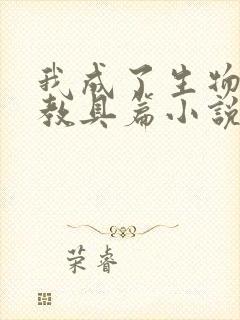 我成了生物
教具篇小說
荣睿